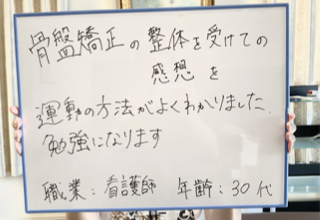 骨盤矯正の整体を受けての
感想を
運動の方法がよくわかりました.
勉強になります
職業：看護師　年齢：30代